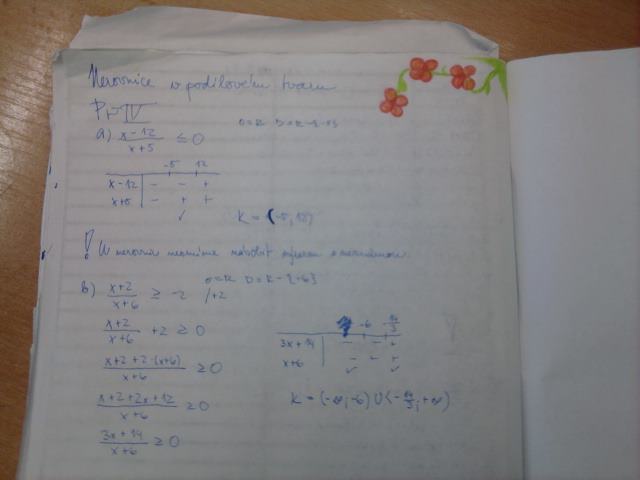 Nerovnice v podílovém tvaru
Př IV
a) x-12 / x+5 ≤ 0
O=R D=R-{-5}
-5 12
x-12 - - +
x+5 - + +
✓
K = (-5, 12⟩
! U nerovnic nesmíme násobit výrazem s neznámou.
b) x+2 / x+6 ≥ -2 /+2
O=R D=R-{-6}
x+2 / x+6 +2 ≥ 0
x+2+2·(x+6) / x+6 ≥ 0
x+2+2x+12 / x+6 ≥ 0
3x+14 / x+6 ≥ 0
-6 -14/3
3x+14 - - +
x+6 - + +
✓ ✓
K = (-∞; -6) ∪ ⟨-14/3; +∞)